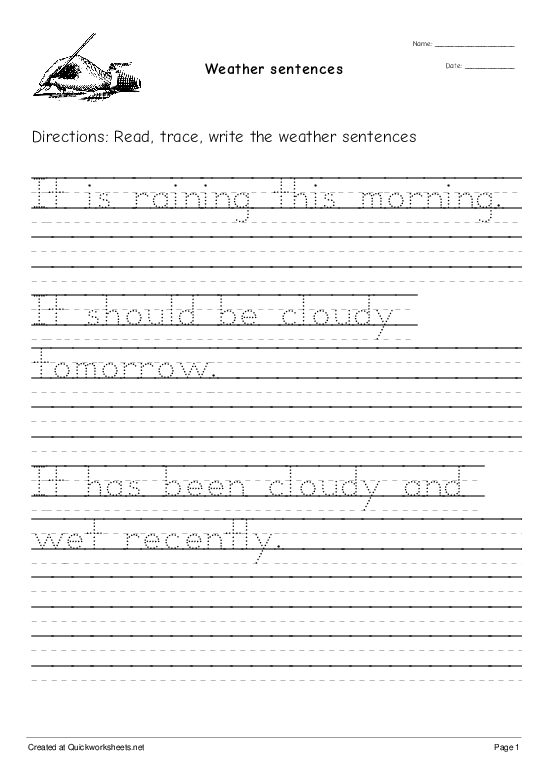 Name: ____________________
Weather sentences
Date: ____________
Directions: Read, trace, write the weather sentences
It is raining this morning.
It should be cloudy
tomorrow.
It has been cloudy and
wet recently.
Created at Quickworksheets.net
Page 1